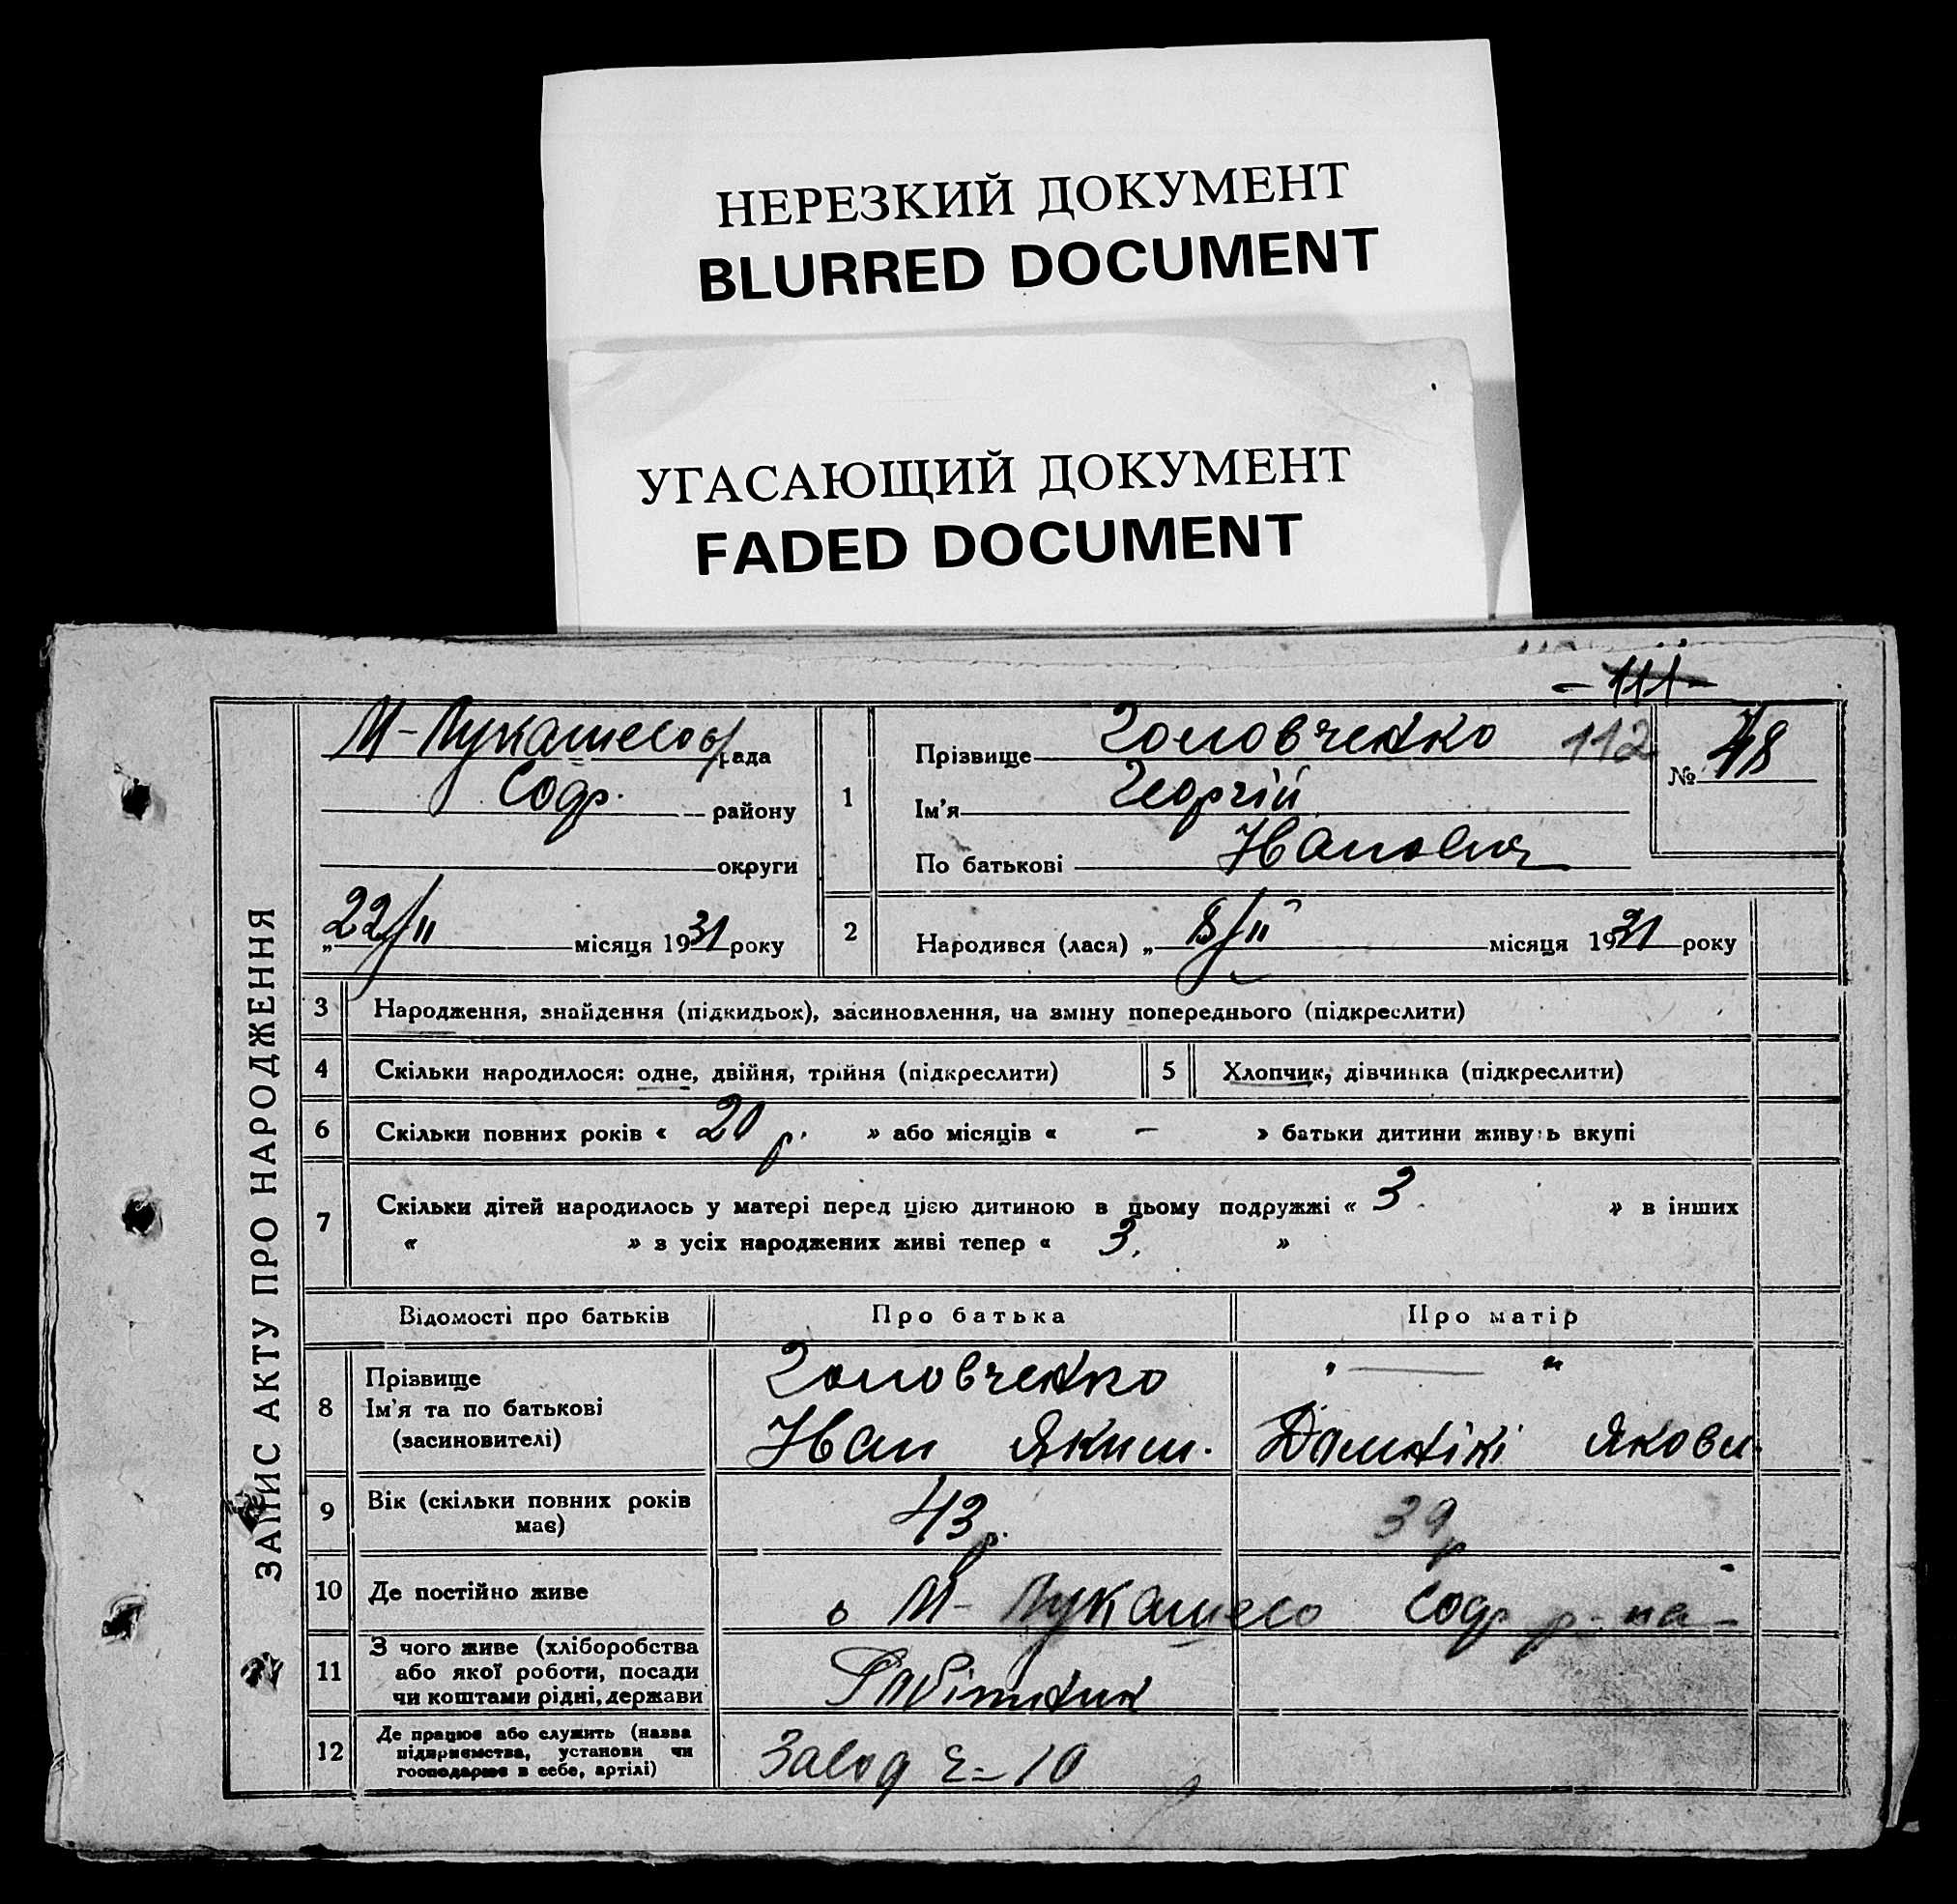 НЕРЕЗКИЙ ДОКУМЕНТ
BLURRED DOCUMENT
УГАСАЮЩИЙ ДОКУМЕНТ
FADED DOCUMENT
- 111 -
ЗАПИС АКТУ ПРО НАРОДЖЕННЯ
М-Лукашесов рада
Солр. району
округи
„22/II місяця 1931 року
1
Прізвище Головченко 112
Ім'я Георгій
По батькові Иванович
№ 48
2
Народився (лася) „ 8/II місяця 1931 року
3 Народження, знайдення (підкидьок), засиновлення, на зміну попереднього (підкреслити)
4 Скільки народилося: одне, двійня, трійня (підкреслити)
5 Хлопчик, дівчинка (підкреслити)
6 Скільки повних років « 20 р. » або місяців « – » батьки дитини живуть вкупі
7 Скільки дітей народилось у матері перед цією дитиною в цьому подружжі « 3. » в інших
« » з усіх народжених живі тепер « 3. »
Відомості про батьків Про батька Про матір
8 Прізвище Головченко " — "
Ім'я та по батькові Иван Яким. Домнікі Якови.
(засиновителі)
9 Вік (скільки повних років 43 р. 39 р
має)
10 Де постійно живе с М-Лукашесо Солр р-на
11 З чого живе (хліборобства
або якої роботи, посади
чи коштами рідні, держави Робітник
12 Де працює або служить (назва
підприємства, установи чи
господарює в себе, артілі) Завод 10